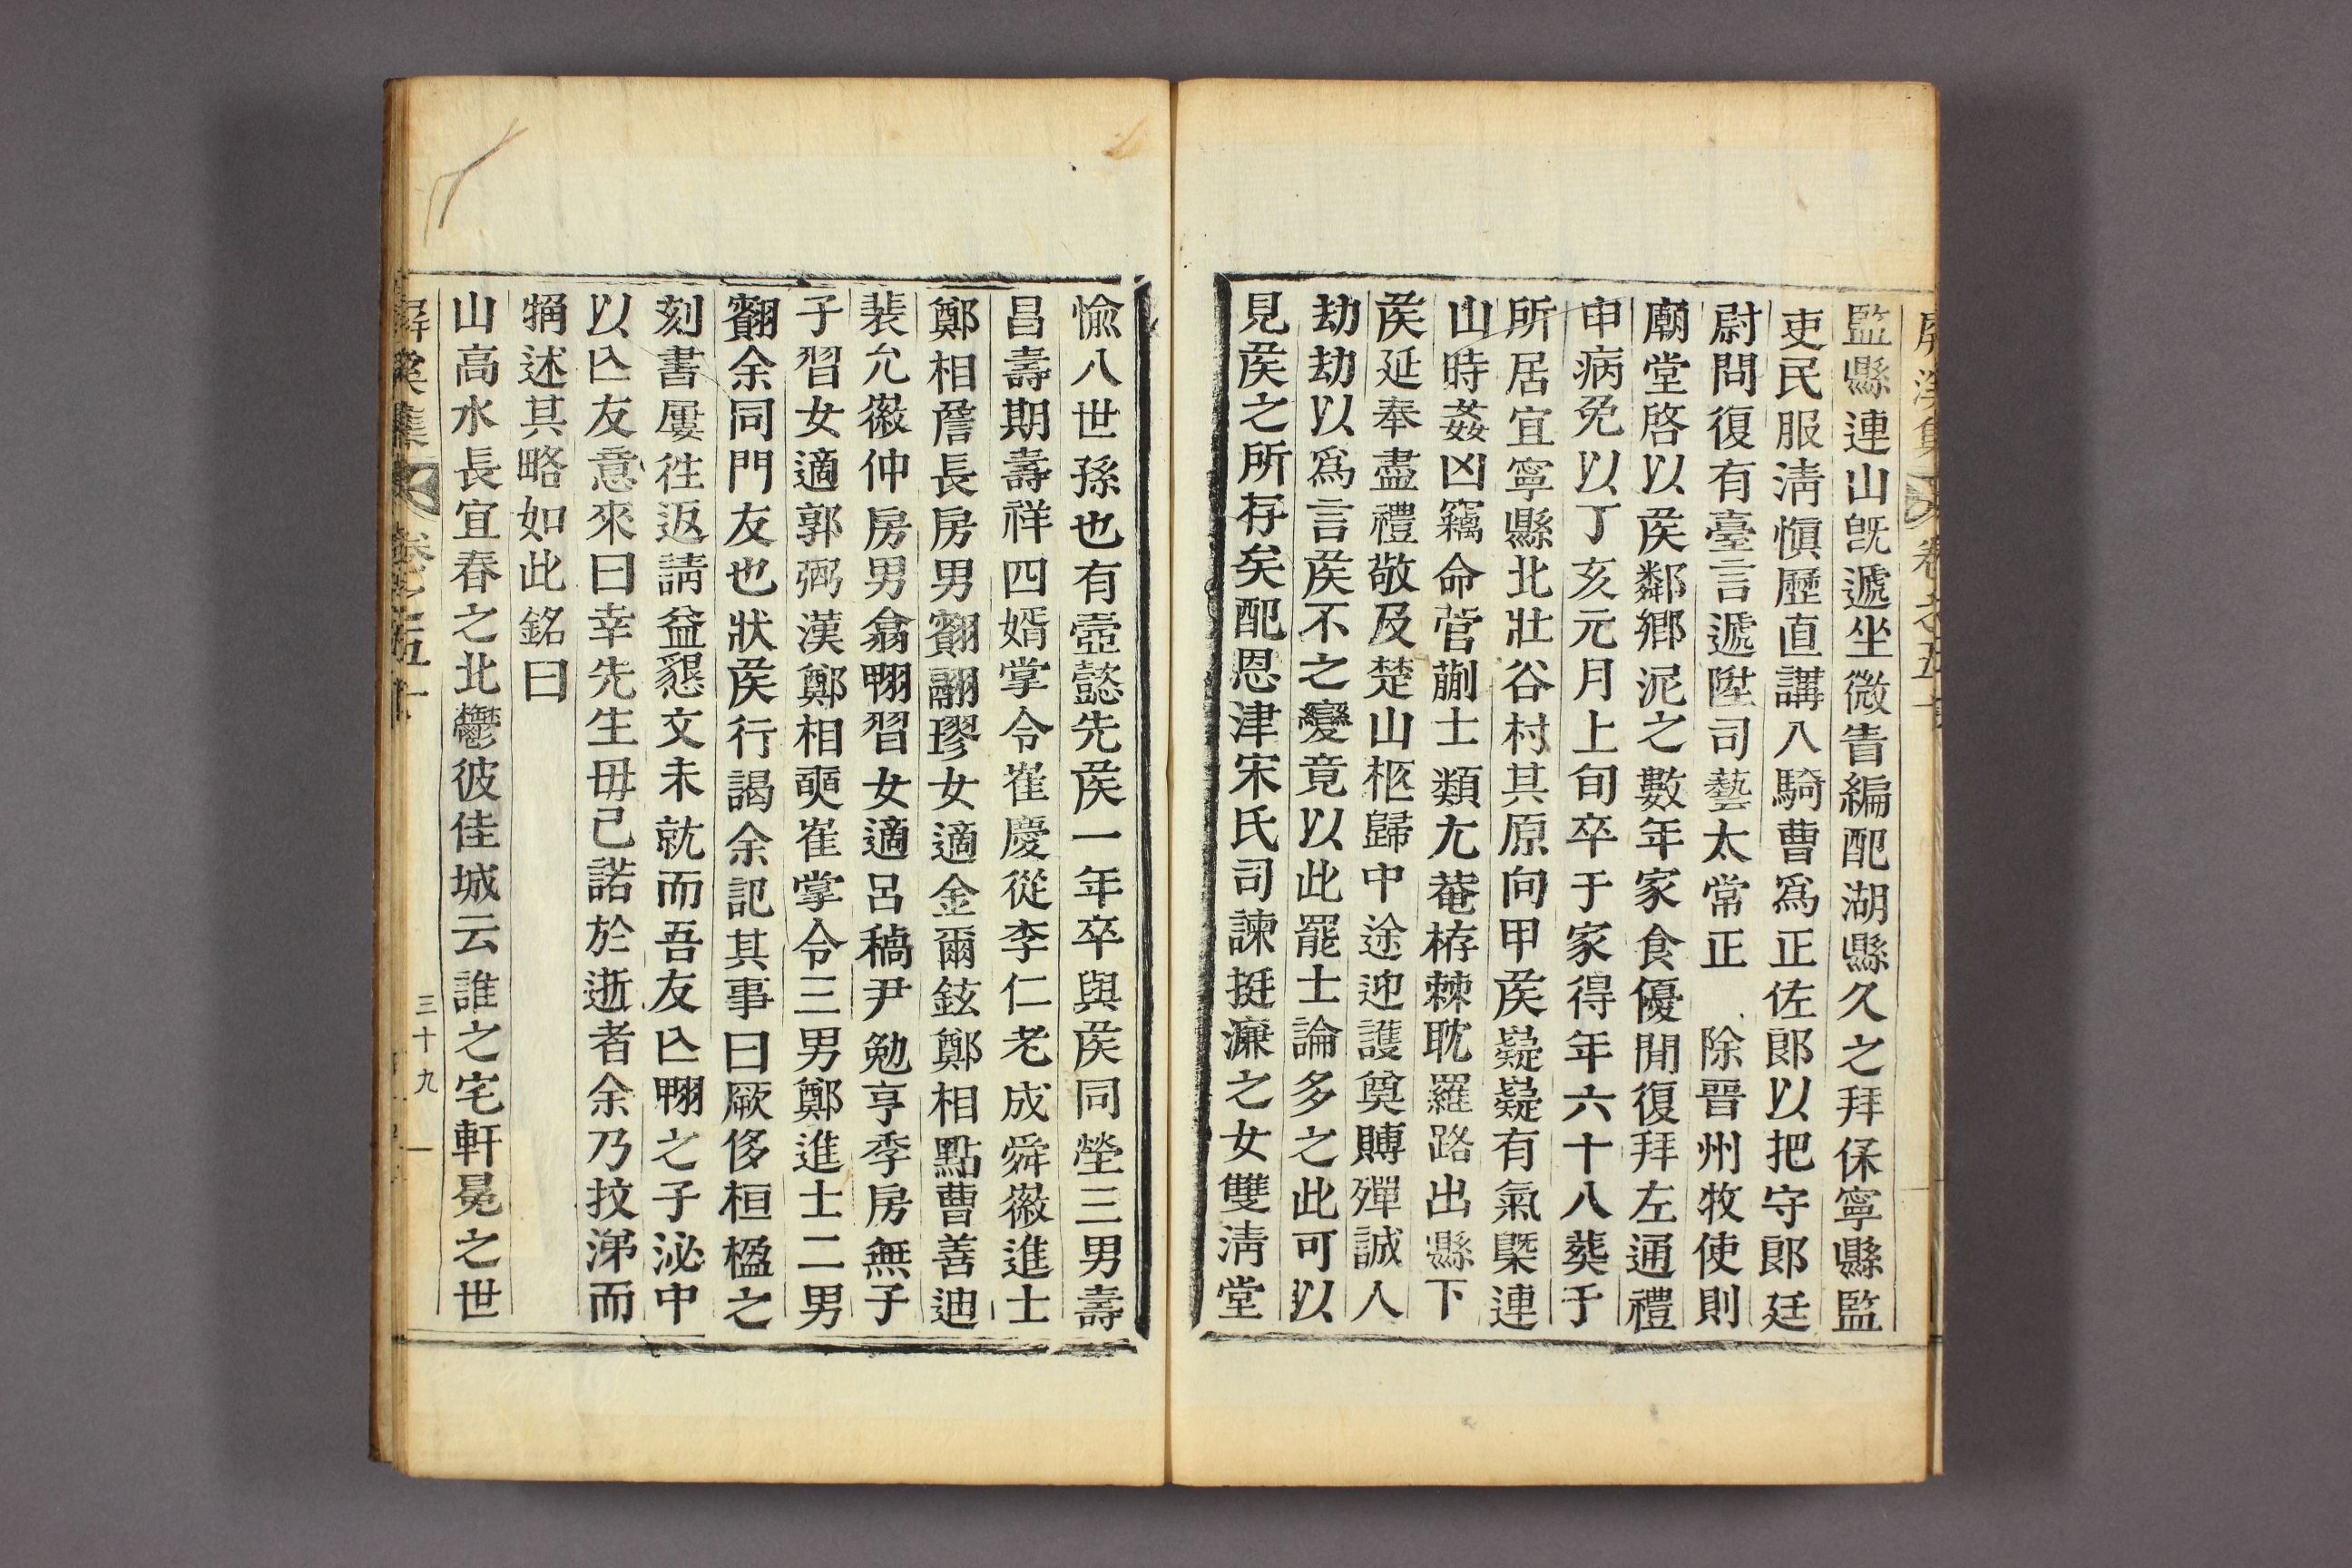 屛溪集 卷之五十
監縣連山旣遞坐微眚編配湖縣久之拜保寧縣監
吏民服淸愼歷直講八騎曹爲正佐郎以把守郎廷
尉問復有臺言遞陞司藝太常正 除晉州牧使則
廟堂啓以矦鄰鄕泥之數年家食優閒復拜左通禮
申病免以丁亥元月上旬卒于家得年六十八葬于
所居宜寧縣北壯谷村其原向甲矦嶷嶷有氣槩連
山時姦凶竊命菅蒯士類尤菴栫棘耽羅路出縣下
矦延奉盡禮敬及楚山柩歸中途迎護奠賻殫誠人
劫劫以爲言矦不之變竟以此罷士論多之此可以
見矦之所存矣配恩津宋氏司諫挺濂之女雙淸堂
愉八世孫也有壼懿先矦一年卒與矦同塋三男壽
昌壽期壽祥四婿掌令崔慶從李仁老成舜徽進士
鄭相詹長房男䎙翮璆女適金爾鉉鄭相點曹善迪
裴允徽仲房男翕翈習女適呂穚尹勉亨季房無子
子習女適郭弼漢鄭相奭崔掌令三男鄭進士二男
余同門友也狀矦行謁余記其事曰厥侈桓楹之
刻書屢徃返請益懇文未就而吾友亾翈之子泌中
以亾友意來曰幸先生毋已諾於逝者余乃抆涕而
𥡴述其略如此銘曰
山高水長宜春之北鬱彼佳城云誰之宅軒冕之世
屛溪集 卷之五十
三十九